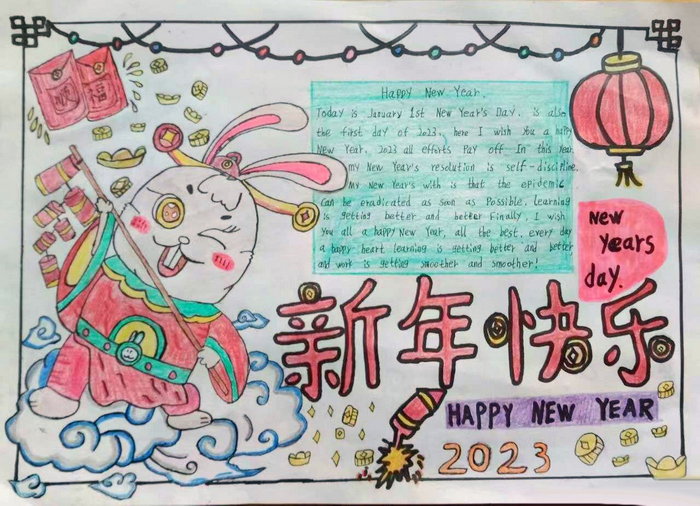 福
Happy New Year.
Today is January 1st New Year's Day, is also
the first day of 2023, here I wish you a happy
New Year, 2023 all efforts Pay off In this Year,
my New Year's resolution is self-discipline.
My New Year's with is that the epidemic
can be eradicated as soon as Possible, learning
is getting better and better Finally, I wish
You all a happy New Year, all the best, every day
a happy heart learning is getting better and better
and work is getting smoother and smoother!
New
Years
day.
新年快乐
HAPPY NEW YEAR
2023